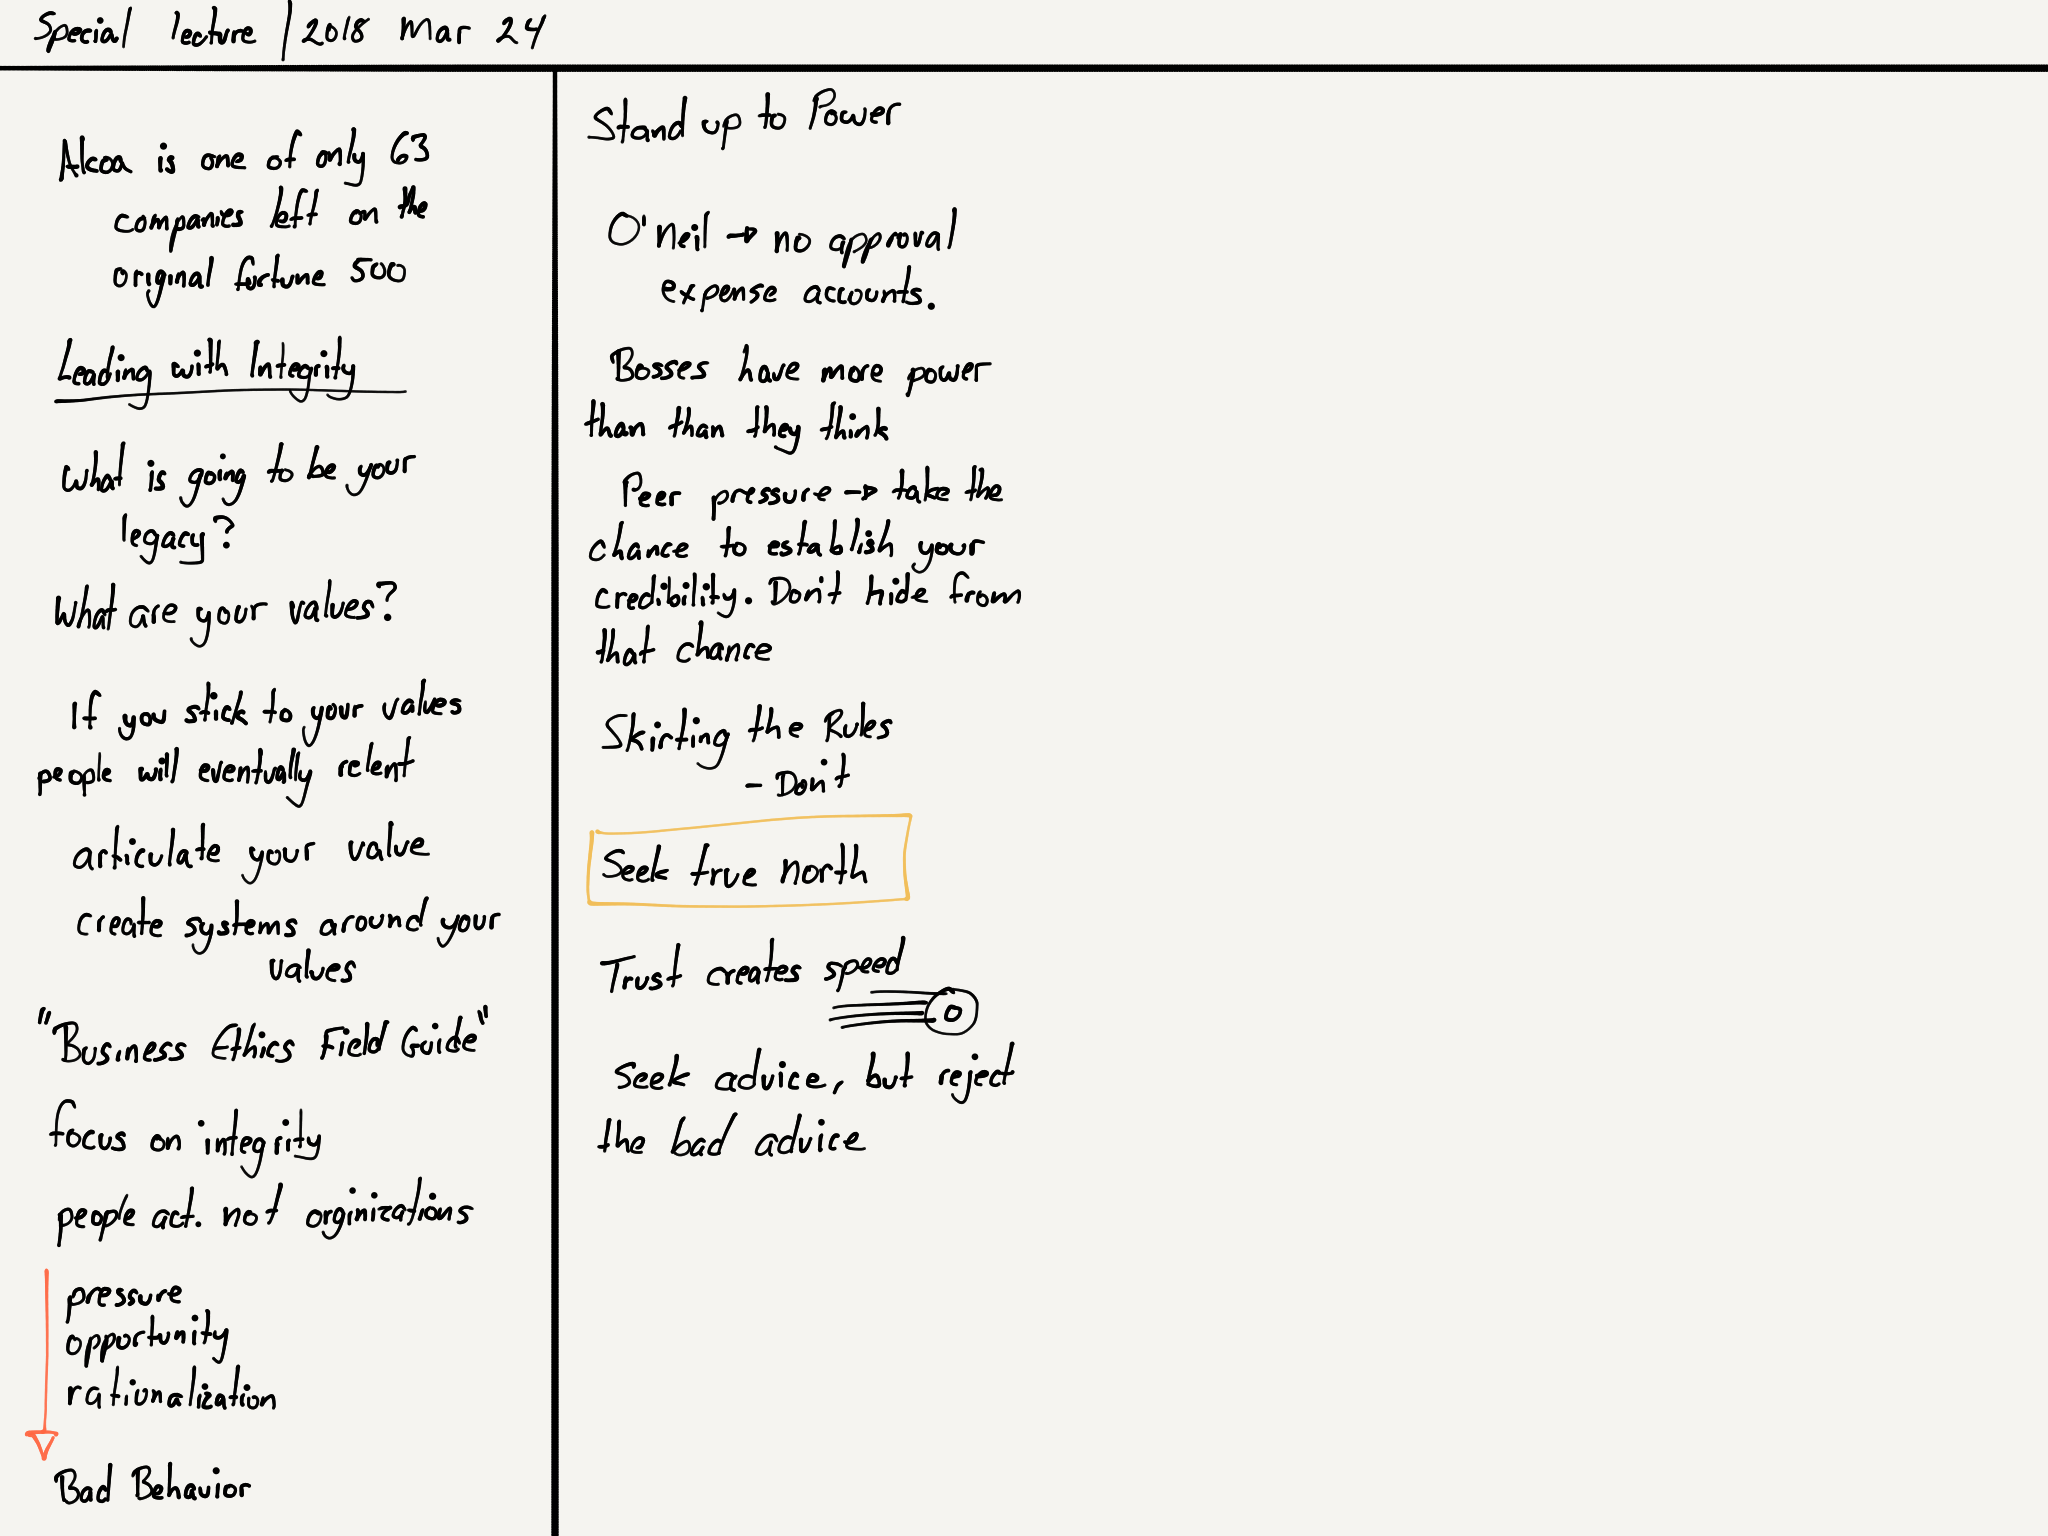 Special lecture | 2018 Mar 24
Alcoa is one of only 63
companies left on the
original fortune 500
Leading with Integrity
What is going to be your
legacy?
What are your values?
If you stick to your values
people will eventually relent
articulate your value
create systems around your
values
"Business Ethics Field Guide"
focus on integrity
people act. not orginizations
pressure
opportunity
rationalization
Bad Behavior
Stand up to Power
O'Neil → no approval
expense accounts.
Bosses have more power
than than they think
Peer pressure → take the
chance to establish your
credibility. Don't hide from
that chance
Skirting the Rules
- Don't
Seek true north
Trust creates speed
Seek advice, but reject
the bad advice